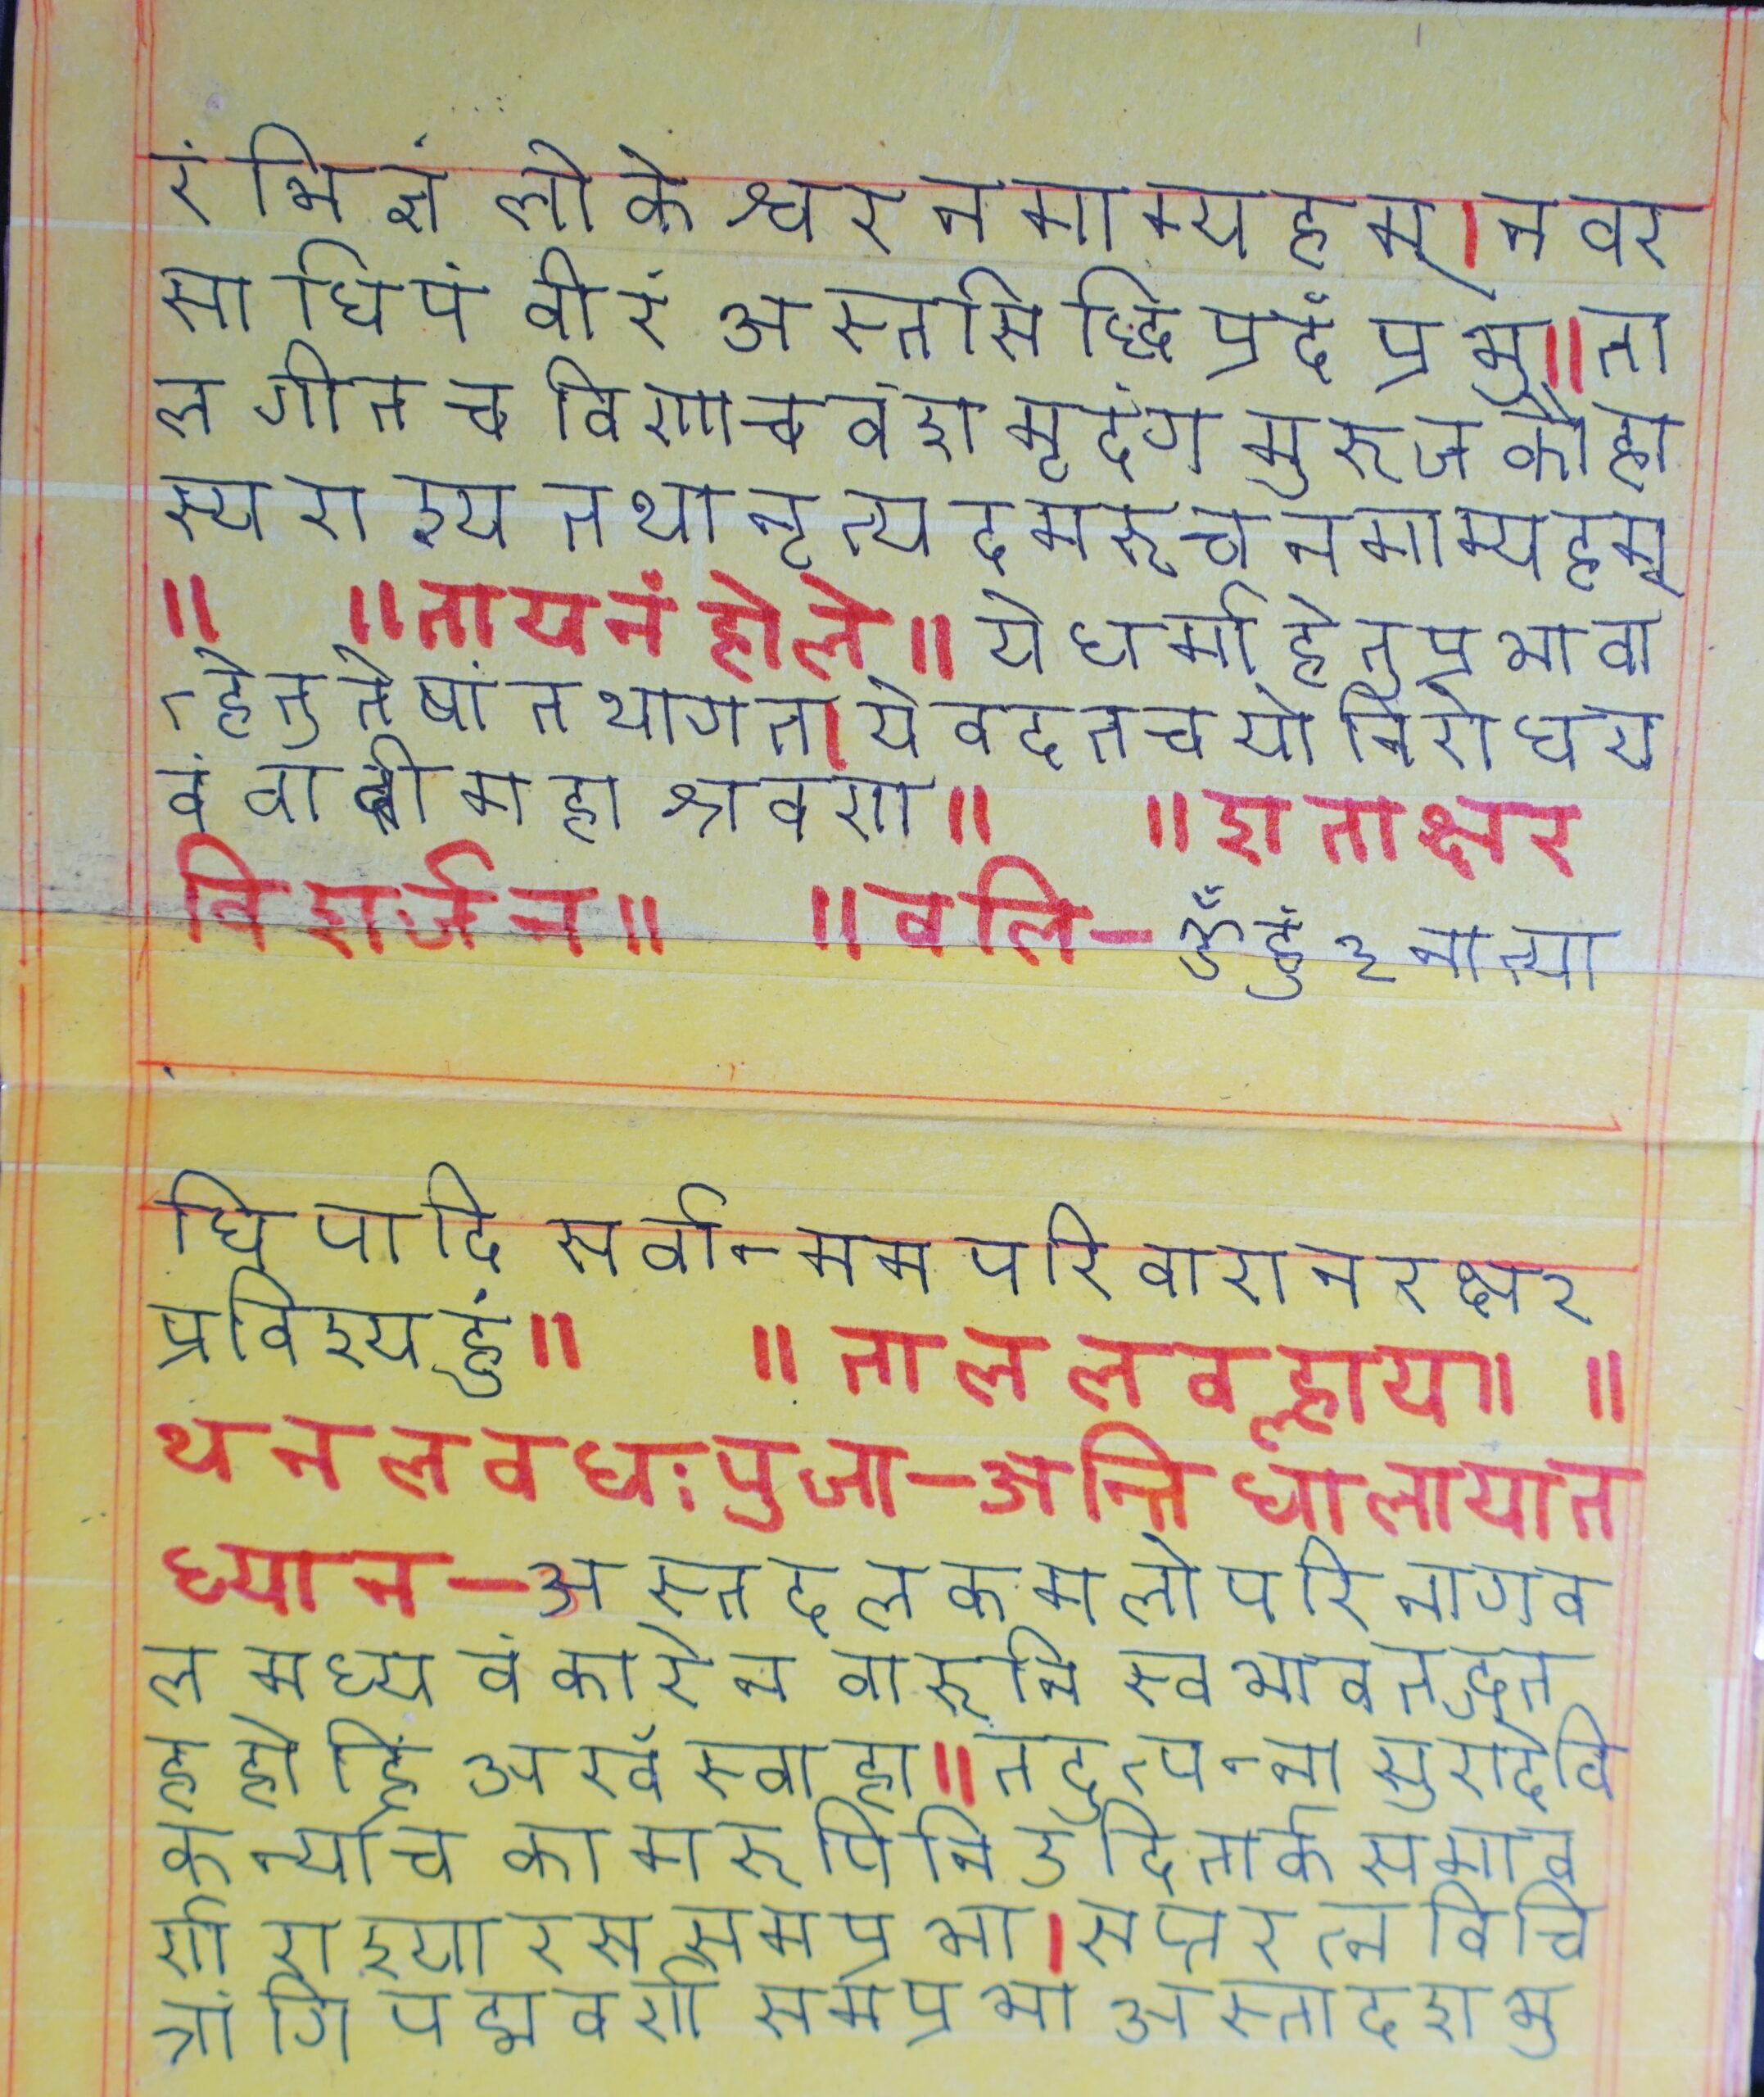 रंभिज्ञं लोकेश्वर नमाम्यहम्।नवर
साधिपं वीरं अस्तसिद्धिप्रदं प्रभु॥ता
लगीतचविणाचवंशमृदंगमुरुजकौहा
स्यराश्यतथानृत्यदमरूचनमाम्यहम्
॥ ॥तायनं होले॥ येधर्माहेतुप्रभावा
न्हेतुतेषांतथागता।येवदतचयोनिरोधय
वंवादीमहाश्रवणा॥ ॥शताक्षर
विशर्जन॥ ॥वलि-ॐहुं२नात्या
धिपादि सर्वान्ममपरिवारानरक्ष२
प्रविश्यहुं॥ ॥ताललवल्हाय॥ ॥
थनलवधःपुजा-अन्तिधालायात
ध्यान-अस्तदलकमलोपरिनागव
लमध्यवंकारेनवारूनिस्वभावतद्धत
हहोह्रिं अखँस्वाहा॥तदुत्पन्नासुरादेवि
कन्याचकामरूपिनिउदितार्कसमाव
र्णाराश्यारससमप्रभा।सप्तरत्नविचि
त्रांगिपद्मवर्णासमप्रभाअस्तादशभु